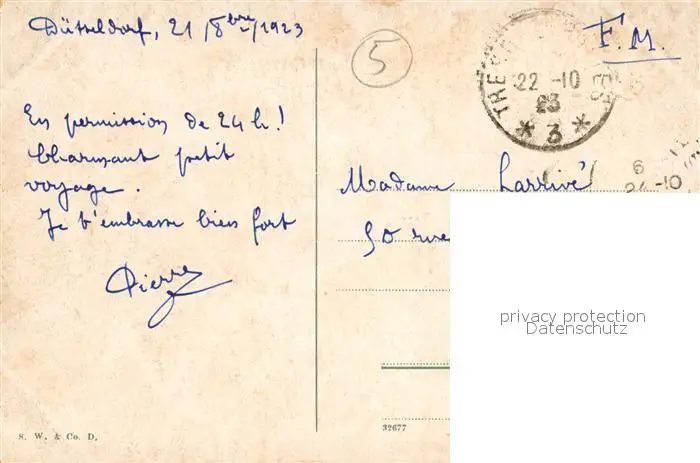 Düsseldorf, 21 / 8bre / 1923
5
F.M.
22 -10
23
* 3 *
En permission de 24 h !
Charmant petit
voyage.
Je t'embrasse bien fort
Pierre
6
24-10
Madame Larrivé
50 rue
privacy protection
Datenschutz
S. W. & Co. D.
32677